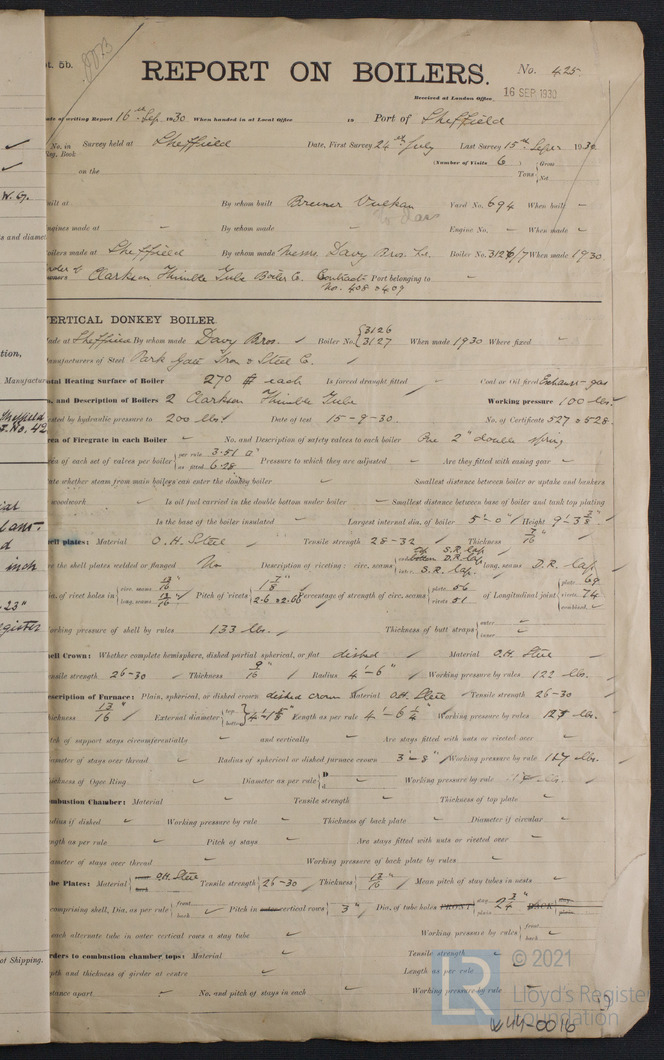 pt. 5b.
REPORT ON BOILERS.
No. 425
Received at London Office 16 SEP 1930
Date of writing Report 16th Sep. 1930 When handed in at Local Office 19 Port of Sheffield
No. in Reg. Book Survey held at Sheffield Date, First Survey 24th July Last Survey 15th Septr 1930
(Number of Visits 6) Gross Tons Net
on the
Built at By whom built Bremer Vulkan Yard No. 694 When built -
Engines made at - By whom made - Engine No. - When made -
Boilers made at Sheffield By whom made Messrs. Davy Bros. Ld. Boiler No. 3126/7 When made 1930
Owners Clarkson Thimble Tube Boiler Co. Contracts Port belonging to -
No. 408 & 409
VERTICAL DONKEY BOILER.
Made at Sheffield By whom made Davy Bros. Boiler No. 3126 3127 When made 1930 Where fixed -
Manufacturers of Steel Park Gate Iron & Steel Co.
Total Heating Surface of Boiler 270 # each Is forced draught fitted Coal or Oil fired Exhaust-gas
No. and Description of Boilers 2 Clarkson Thimble Tube Working pressure 100 lbs.
Tested by hydraulic pressure to 200 lbs. Date of test 15-9-30. No. of Certificate 527 & 528.
Area of Firegrate in each Boiler No. and Description of safety valves to each boiler One 2" double spring
Area of each set of valves per boiler per rule 3.51 as fitted 6.28 Pressure to which they are adjusted Are they fitted with easing gear
State whether steam from main boilers can enter the donkey boiler Smallest distance between boiler or uptake and bunkers
woodwork Is oil fuel carried in the double bottom under boiler Smallest distance between base of boiler and tank top plating
Is the base of the boiler insulated Largest internal dia. of boiler 5'-0" Height 9'-3 7/8"
Shell plates: Material O.H. Steel Tensile strength 28-32 Thickness 7/16"
Are the shell plates welded or flanged No Description of riveting: circ. seams top S.R. lap bottom D.R. lap inter. S.R. lap. long. seams D.R. lap.
Dia. of rivet holes in circ. seams 13/16 long. seams 13/16" Pitch of rivets 1 7/8" 2.6 & 2.66 Percentage of strength of circ. seams plate 56 rivets 51 of Longitudinal joint plate 69 rivets 74 combined
Working pressure of shell by rules 133 lbs. Thickness of butt straps outer inner
Shell Crown: Whether complete hemisphere, dished partial spherical, or flat dished Material O.H. Steel
Tensile strength 26-30 Thickness 9/16" Radius 4'-6" Working pressure by rules 122 lbs.
Description of Furnace: Plain, spherical, or dished crown dished crown Material O.H. Steel Tensile strength 26-30
Thickness 13/16" External diameter top bottom 4'-1 5/8" Length as per rule 4'-6 1/4" Working pressure by rules lbs.
Pitch of support stays circumferentially and vertically Are stays fitted with nuts or riveted over
Diameter of stays over thread Radius of spherical or dished furnace crown 3'-8" Working pressure by rule 117 lbs.
Thickness of Ogee Ring Diameter as per rule D d Working pressure by rule
Combustion Chamber: Material Tensile strength Thickness of top plate
Radius if dished Working pressure by rule Thickness of back plate Diameter if circular
Length as per rule Pitch of stays Are stays fitted with nuts or riveted over
Diameter of stays over thread Working pressure of back plate by rules
Tube Plates: Material O.H. Steel Tensile strength 26-30 Thickness 13/16" Mean pitch of stay tubes in nests
comprising shell, Dia. as per rule front back Pitch in outer vertical rows 3" Dia. of tube holes FRONT stay plain 2 3/4" BACK stay plain
Is each alternate tube in outer vertical rows a stay tube Working pressure by rules front back
Girders to combustion chamber tops: Material Tensile strength
Depth and thickness of girder at centre Length as per rule
Distance apart No. and pitch of stays in each Working pressure by rule
W44-0016
© 2021
LR
Lloyd's Register
Foundation
W. G.
s and diamet
tion,
Manufacture
Sheffield
inch
-23"
egister
of Shipping.